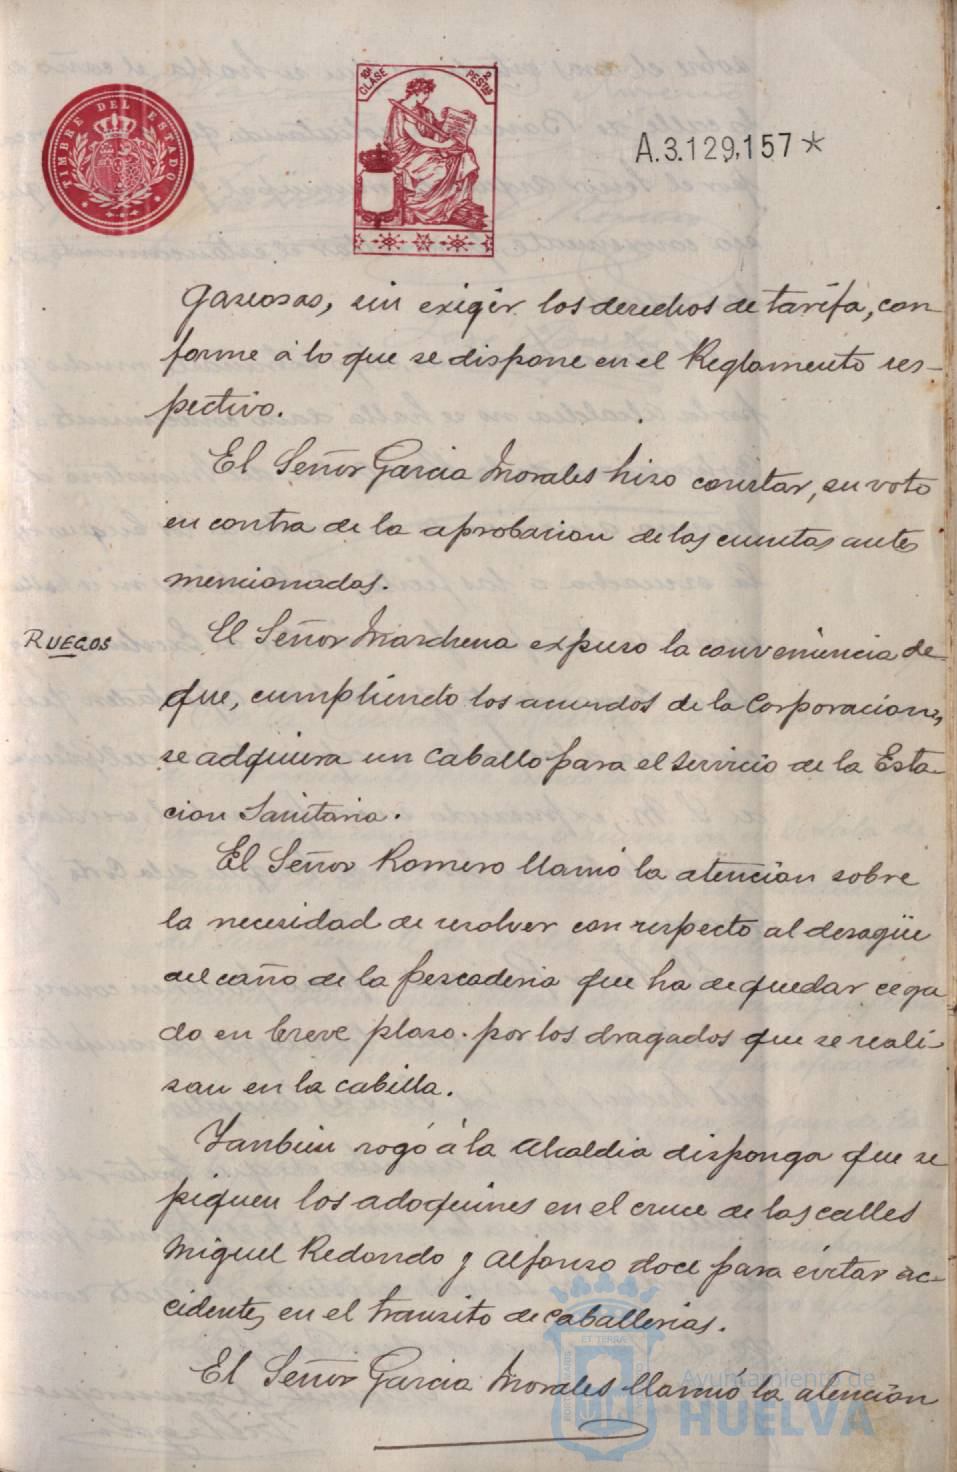 TIMBRE DEL ESTADO
10ª CLASE
2 PESTAS
A.3.129,157*
gaseosas, sin exigir los derechos de tarifa, con-
forme á lo que se dispone en el Reglamento res-
pectivo.
El Señor Garcia Morales hizo constar, su voto
en contra de la aprobacion de las cuentas antes
mencionadas.
RUEGOS
El Señor Marchena expuso la conveniencia de
que, cumpliendo los acuerdos de la Corporacion,
se adquiera un caballo para el servicio de la Esta-
cion Sanitaria.
El Señor Romero llamó la atencion sobre
la necesidad de resolver con respecto al desagüe
del caño de la Pescaderia que ha de quedar cega
do en breve plazo. por los dragados que se reali-
san en la cabilla.
Tanbien rogó á la Alcaldia disponga que se
piquen los adoquines en el cruce de las calles
Miguel Redondo y Alfonso doce para evitar ac-
cidentes en el transito de caballerias.
El Señor Garcia Morales llamó la atencion
Ayuntamiento de
HUELVA